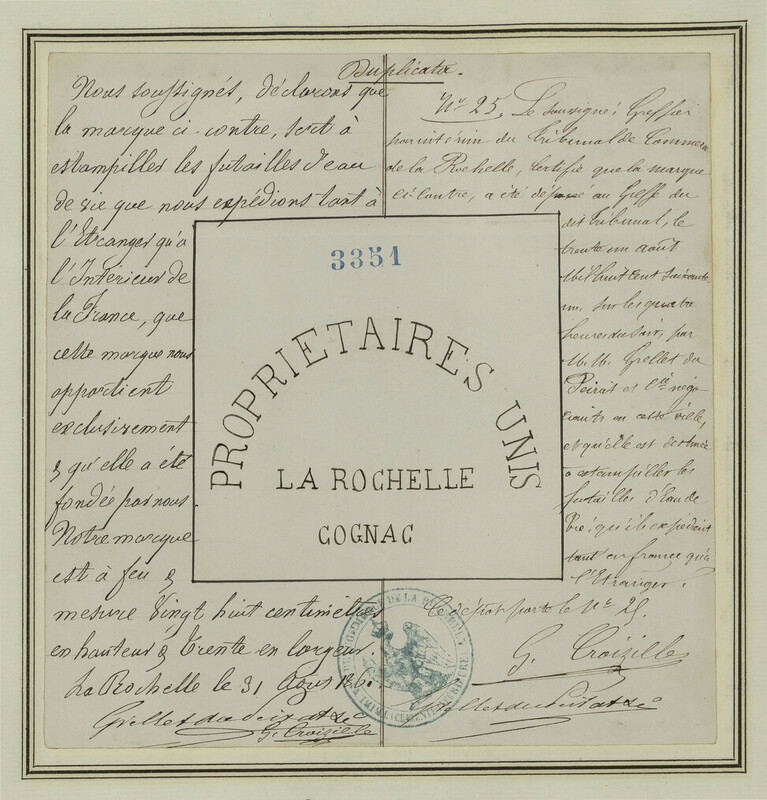 Duplicata.
Nous soussignés, déclarons que
la marque ci-contre, sert à
estampiller les futailles d'eau
de vie que nous expédions tant à
l'Etranger qu'à
l'Intérieur de
la France, que
cette marque nous
appartient
exclusivement
& qu'elle a été
fondée par nous.
Notre marque
est à feu &
mesure Vingt huit centimètres
en hauteur & Trente en largeur.
La Rochelle le 31 Août 186
G. Croizille
3351
PROPRIETAIRES UNIS
LA ROCHELLE
COGNAC
N° 25. Le soussigné, Greffier
du Tribunal de Commerce
de la Rochelle, Certifie que la marque
Ci-Contre, a été déposée au Greffe du
dit tribunal, le
trente un août
Mil huit cent soixante
un, sur les quatre
heures du soir, par
M. M. Grellet du
Peirat et Cie négo-
ciants en cette ville,
et qu'elle est destinée
a estampiller les
futailles d'Eau de
Vie, qu'ils expédient
tant en france qu'à
l'Etranger.
Ce dépôt porte le N° 25.
G. Croizille
Grellet du Peirat & Cie